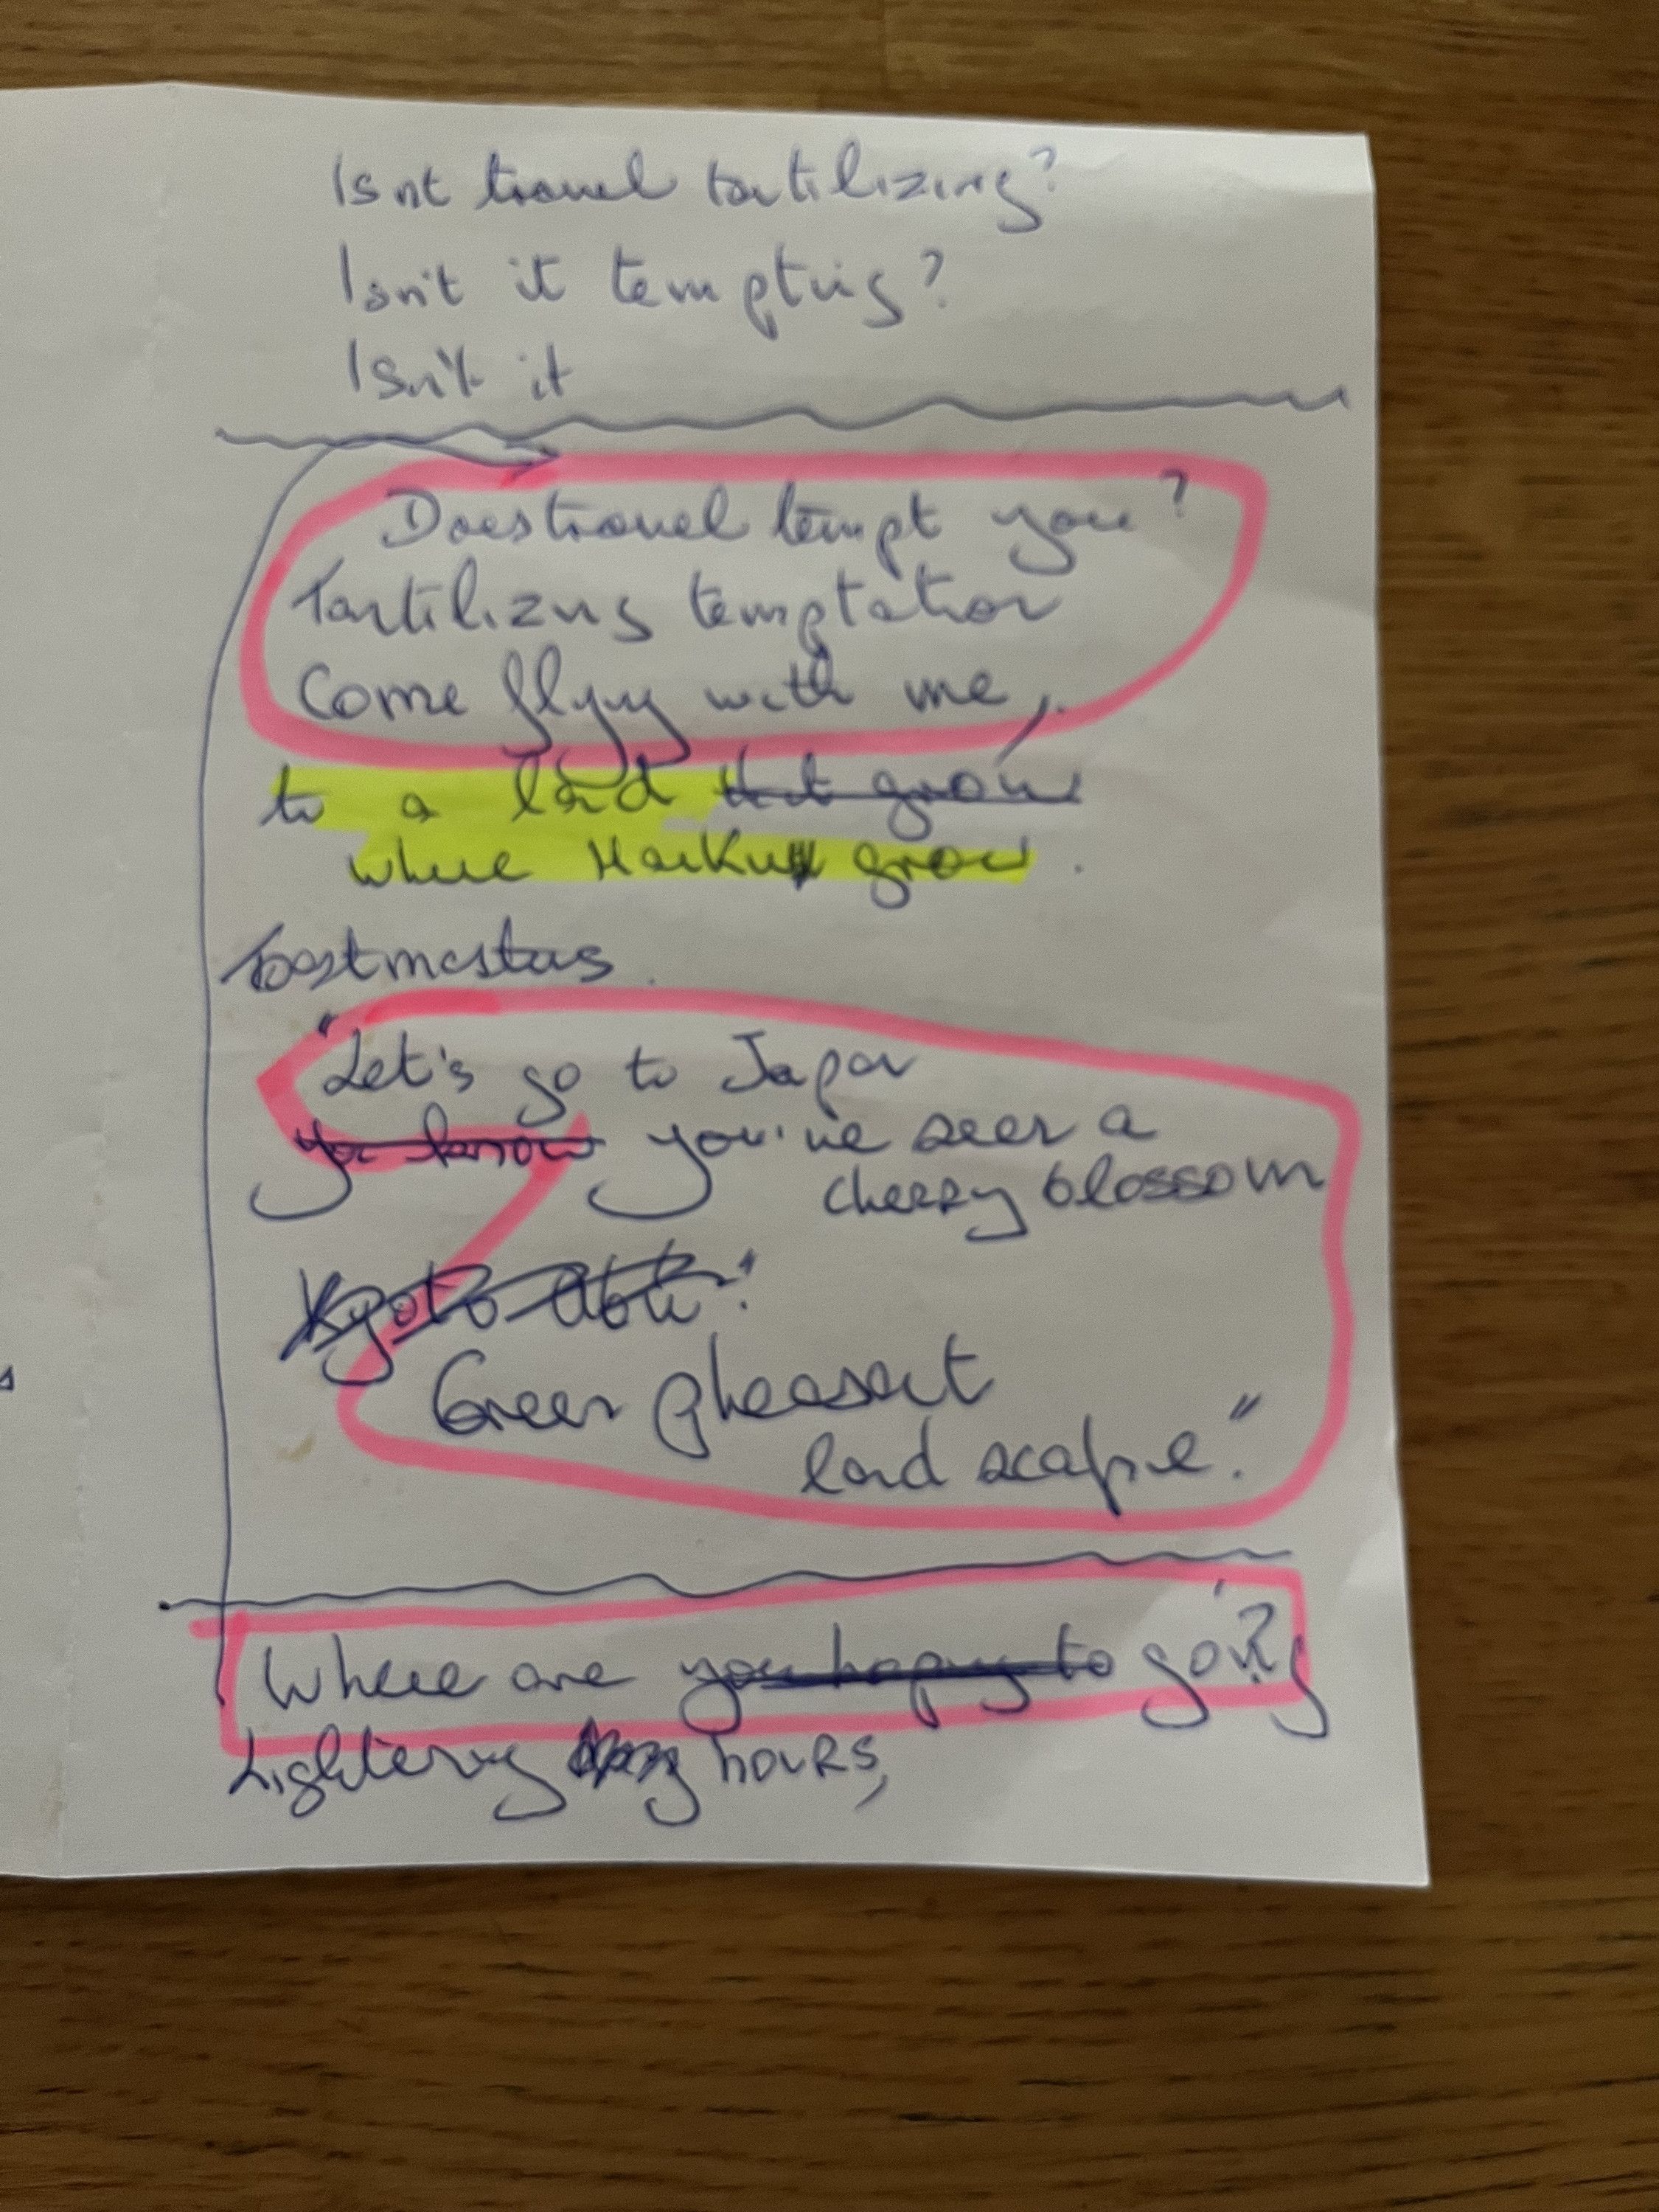 Isnt travel tartilizing?
Isn't it tempting?
Isn't it
Does travel tempt you?
Tartilizing temptation
Come flyng with me,
to a land that grow
where Haiku grow.
Toastmasters.
"Let's go to Japan
you know you've seen a
cherry blossom
Kyoto
Green pheasant
land scape."
Where are you hoping to going?
Lightening hours,